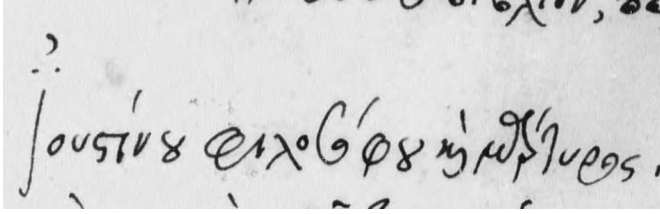 Ἰουστίνου φιλοσόφου καὶ μάρτυρος.